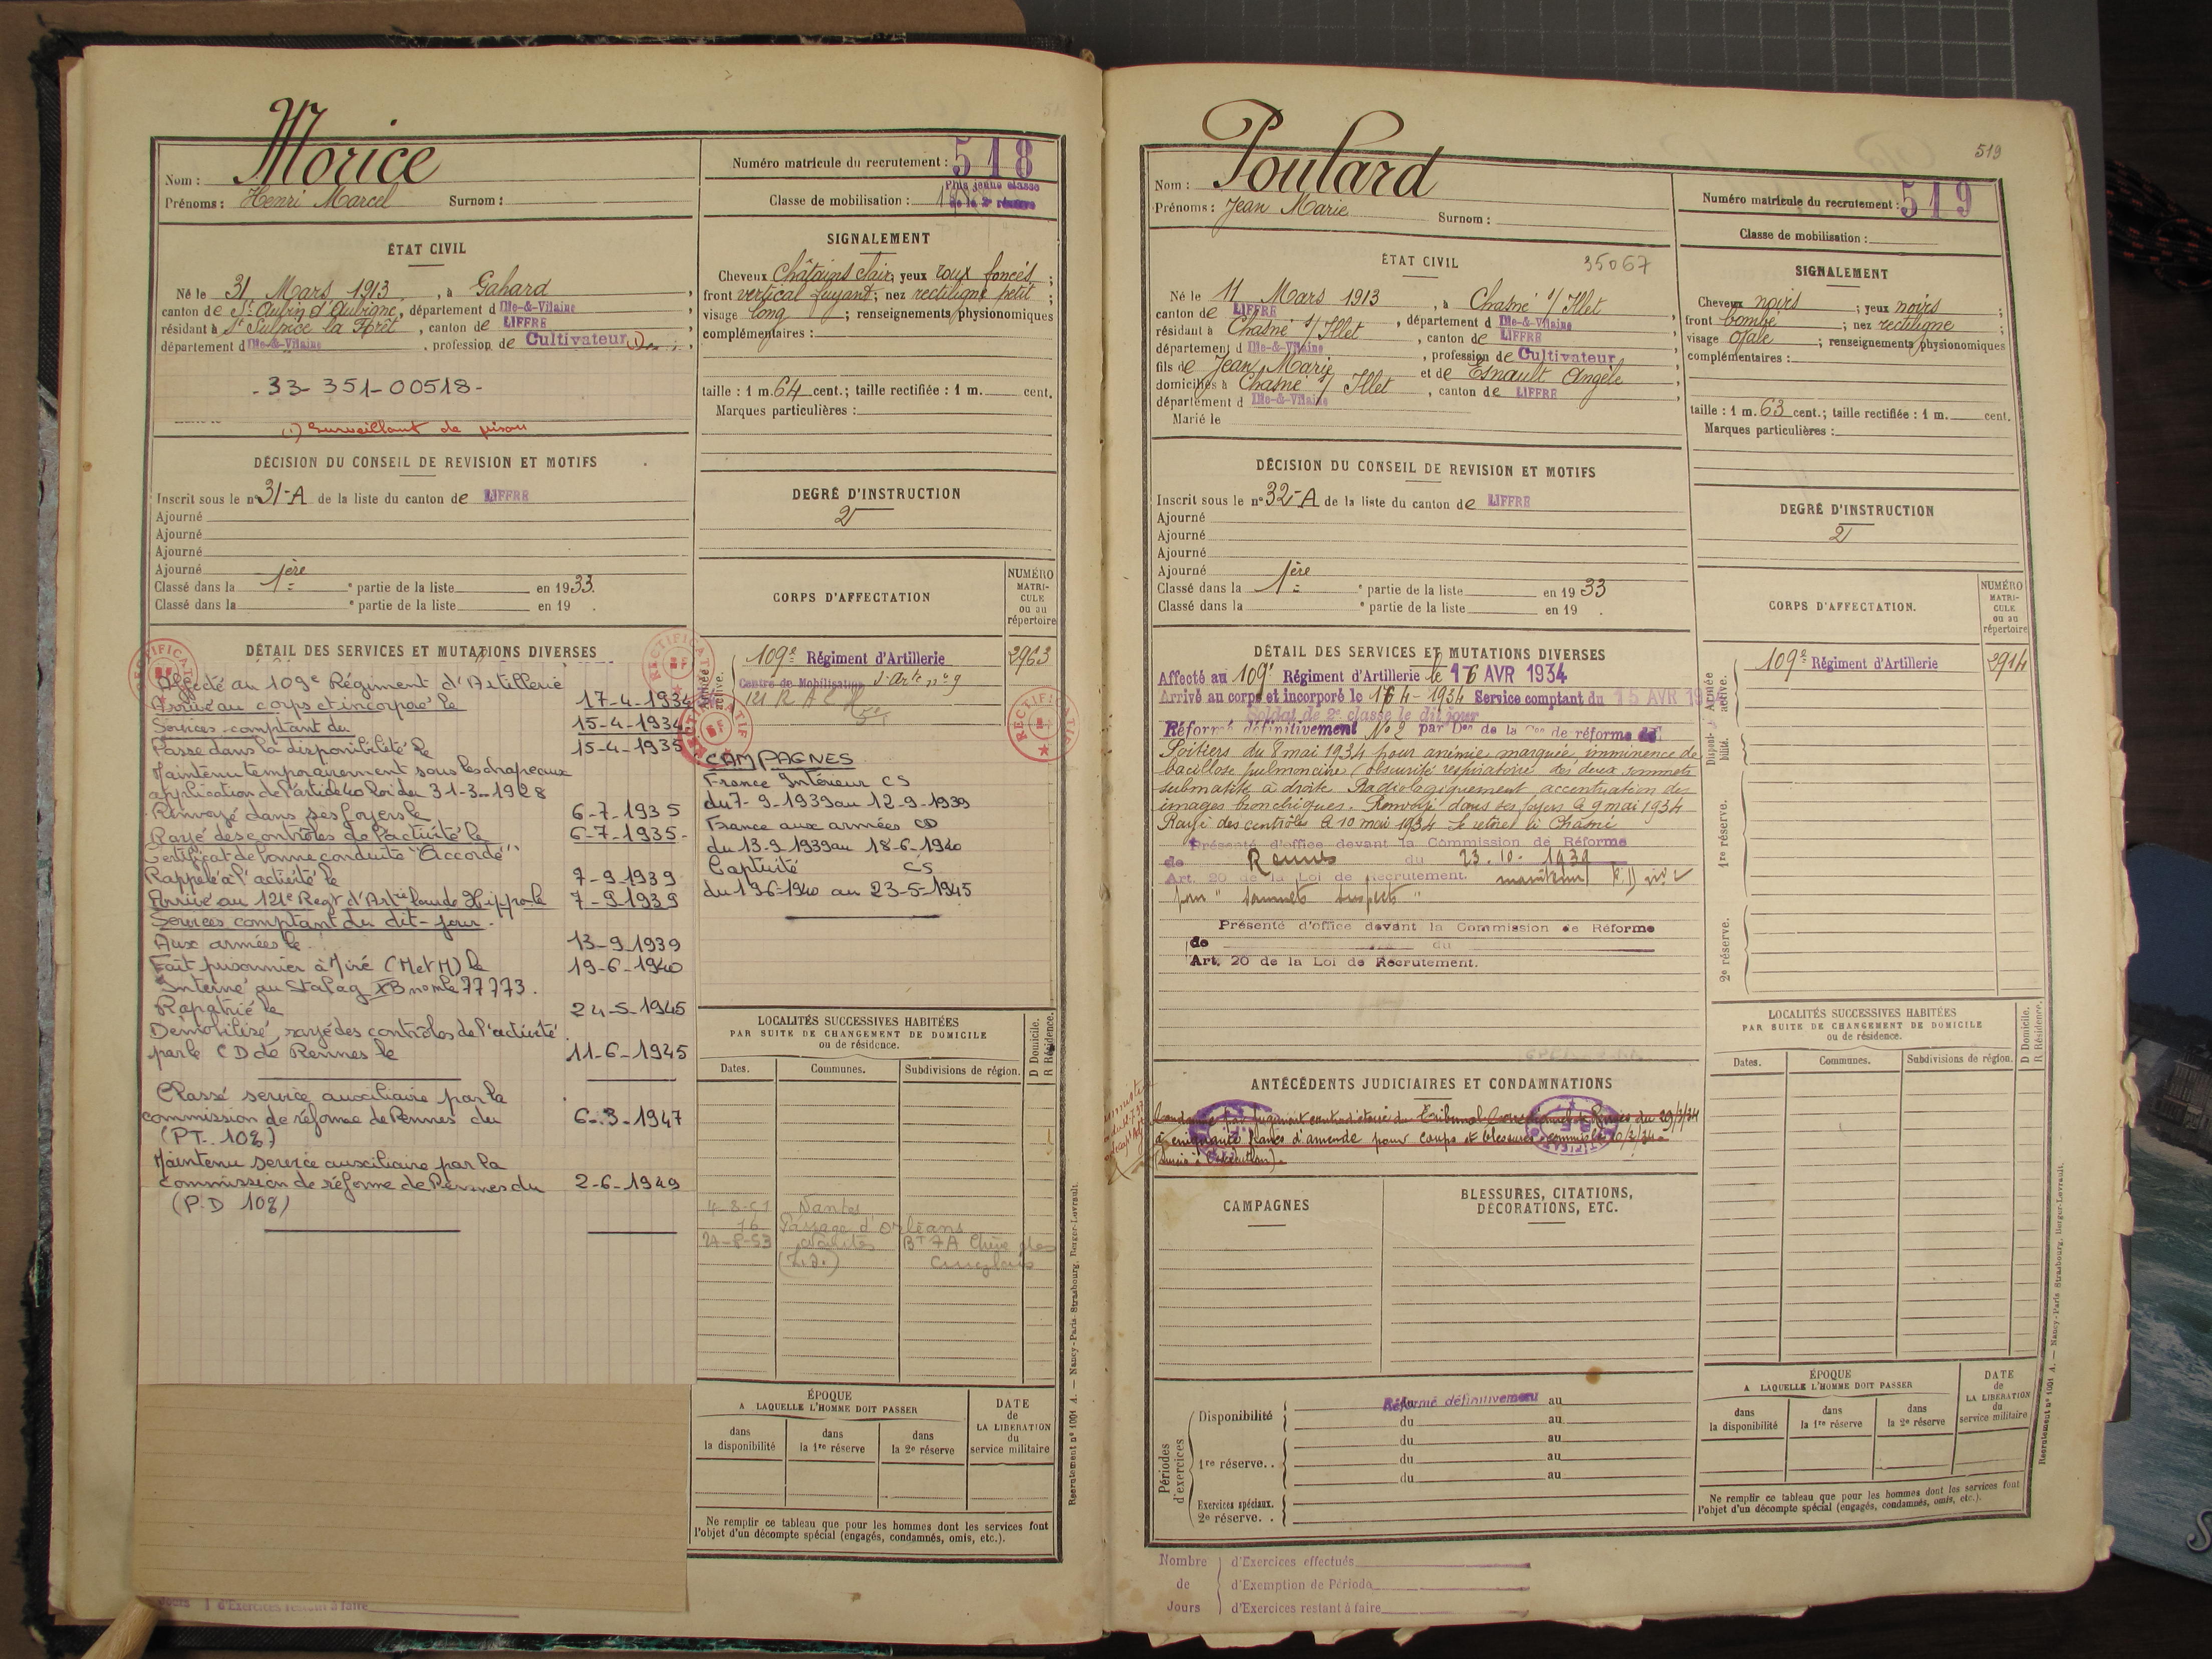 Morice
Nom :
Prénoms : Henri Marcel Surnom :
Numéro matricule du recrutement : 518
Plus jeune classe
Classe de mobilisation : de la 2e réserve
ÉTAT CIVIL
Né le 31 Mars 1913, à Gahard,
canton de St Aubin d'Aubigné, département d Ille-&-Vilaine,
résidant à St Sulpice la Forêt, canton de LIFFRÉ,
département d Ille-&-Vilaine, profession de Cultivateur (1)
-33-351-00518-
(1) Surveillant de prison
SIGNALEMENT
Cheveux Châtains clair; yeux roux foncés;
front vertical fuyant; nez rectiligne petit;
visage long; renseignements physionomiques
complémentaires :
taille : 1 m. 64 cent.; taille rectifiée : 1 m. cent.
Marques particulières :
DÉCISION DU CONSEIL DE REVISION ET MOTIFS
Inscrit sous le n° 31-A de la liste du canton de LIFFRÉ
Ajourné
Ajourné
Ajourné
Ajourné
Classé dans la 1ère e partie de la liste en 1933.
Classé dans la e partie de la liste en 19 .
DEGRÉ D'INSTRUCTION
2
CORPS D'AFFECTATION
NUMÉRO
MATRI-
CULE
ou au
répertoire
Armée active.
109e Régiment d'Artillerie 2963
Centre de Mobilisation d'Arie n° 9
DÉTAIL DES SERVICES ET MUTATIONS DIVERSES
RECTIFICATIF
Affecté au 109e Régiment d'Artillerie
Arrivé au corps et incorporé le 17-4-1934
Services comptant du 15-4-1934
Passé dans la disponibilité le 15-4-1935
Maintenu temporairement sous les drapeaux
application de l'article 40 loi du 31-3-1928
Renvoyé dans ses foyers le 6-7-1935
Rayé des contrôles de l'activité le 6-7-1935-
Certificat de bonne conduite "Accordé"
Rappelé à l'activité le 7-9-1939
Arrivé au 121e Regt d'Artie lourde Hippo le 7-9-1939
Services comptant du dit-jour.
Aux armées le 13-9-1939
Fait prisonnier à (M et M) le 19-6-1940
Interné au Stalag XB nomle 77773.
Rapatrié le 24-5-1945
Démobilisé, rayé des contrôles de l'activité
par le CD de Rennes le 11-6-1945
Classé service auxiliaire par la
commission de réforme de Rennes du 6-3-1947
(PT. 10%)
Maintenu service auxiliaire par la
commission de réforme de Rennes du 2-6-1949
(P.D 10%)
CAMPAGNES
France Intérieur CS
du 7-9-1939 au 12-9-1939
France aux armées CD
du 13-9-1939 au 18-6-1940
Captivité CS
du 19-6-1940 au 23-5-1945
LOCALITÉS SUCCESSIVES HABITÉES
PAR SUITE DE CHANGEMENT DE DOMICILE
ou de résidence.
D Domicile.
R Résidence.
Dates. Communes. Subdivisions de région.
Nantes
16 Passage d'Orléans
27-8-53 Nantes Bt 7A
ÉPOQUE
A LAQUELLE L'HOMME DOIT PASSER
dans la disponibilité
dans la 1re réserve
dans la 2e réserve
DATE de LA LIBÉRATION du service militaire
Ne remplir ce tableau que pour les hommes dont les services font
l'objet d'un décompte spécial (engagés, condamnés, omis, etc.).
Jours d'Exercices restant à faire
Recrutement n° 1001 A. — Nancy-Paris-Strasbourg, Berger-Levrault.
519
Poulard
Nom :
Prénoms : Jean Marie Surnom :
Numéro matricule du recrutement : 519
Classe de mobilisation :
ÉTAT CIVIL 35067
Né le 11 Mars 1913, à Chasné s/ Illet,
canton de LIFFRÉ, département d Ille-&-Vilaine,
résidant à Chasné s/ Illet, canton de LIFFRÉ,
département d Ille-&-Vilaine, profession de Cultivateur,
fils de Jean Marie et de Esnault Angèle,
domiciliés à Chasné s/ Illet, canton de LIFFRÉ,
département d Ille-&-Vilaine
Marié le
SIGNALEMENT
Cheveux noirs; yeux noirs;
front bombé; nez rectiligne;
visage ovale; renseignements physionomiques
complémentaires :
taille : 1 m. 63 cent.; taille rectifiée : 1 m. cent.
Marques particulières :
DÉCISION DU CONSEIL DE REVISION ET MOTIFS
Inscrit sous le n° 32-A de la liste du canton de LIFFRÉ
Ajourné
Ajourné
Ajourné
Ajourné
Classé dans la 1ère e partie de la liste en 1933
Classé dans la e partie de la liste en 19 .
DEGRÉ D'INSTRUCTION
2
CORPS D'AFFECTATION.
NUMÉRO
MATRI-
CULE
ou au
répertoire
Armée active.
109e Régiment d'Artillerie 2914
Disponibilité.
1re réserve.
2e réserve.
DÉTAIL DES SERVICES ET MUTATIONS DIVERSES
Affecté au 109e Régiment d'Artillerie le 16 AVR 1934
Arrivé au corps et incorporé le 16 4-1934 Service comptant du 15 AVR 19
Soldat de 2e classe le dit jour
Réformé définitivement N° 2 par Don de la Con de réforme de
Poitiers du 8 mai 1934 pour anémie marquée imminence de
bacillose pulmonaire (obscurité respiratoire des deux sommets
submatité à droite. Radiologiquement accentuation des
images bronchiques. Renvoyé dans ses foyers le 9 mai 1934
Rayé des contrôles le 10 mai 1934 Se retire à Chasné
Présenté d'office devant la Commission de Réforme
de Rennes du 23.10.1939
Art. 20 de la Loi de Recrutement. maintenu
pour "sommets suspects"
Présenté d'office devant la Commission de Réforme
de du
Art. 20 de la Loi de Recrutement.
ANTÉCÉDENTS JUDICIAIRES ET CONDAMNATIONS
Condamné par jugement contradictoire du Tribunal Correctionnel de Rennes du 29/3/34
à cinquante francs d'amende pour coups et blessures commis le 10/2/34.
CAMPAGNES
BLESSURES, CITATIONS,
DÉCORATIONS, ETC.
LOCALITÉS SUCCESSIVES HABITÉES
PAR SUITE DE CHANGEMENT DE DOMICILE
ou de résidence.
D Domicile.
R Résidence.
Dates. Communes. Subdivisions de région.
Périodes d'exercices
Disponibilité du Réformé définitivement au
du au
du au
1re réserve. . du au
du au
Exercices spéciaux.
2e réserve. .
ÉPOQUE
A LAQUELLE L'HOMME DOIT PASSER
dans la disponibilité
dans la 1re réserve
dans la 2e réserve
DATE de LA LIBÉRATION du service militaire
Ne remplir ce tableau que pour les hommes dont les services font
l'objet d'un décompte spécial (engagés, condamnés, omis, etc.).
Nombre d'Exercices effectués
de d'Exemption de Période
Jours d'Exercices restant à faire
Recrutement n° 1001 A. — Nancy-Paris-Strasbourg, Berger-Levrault.